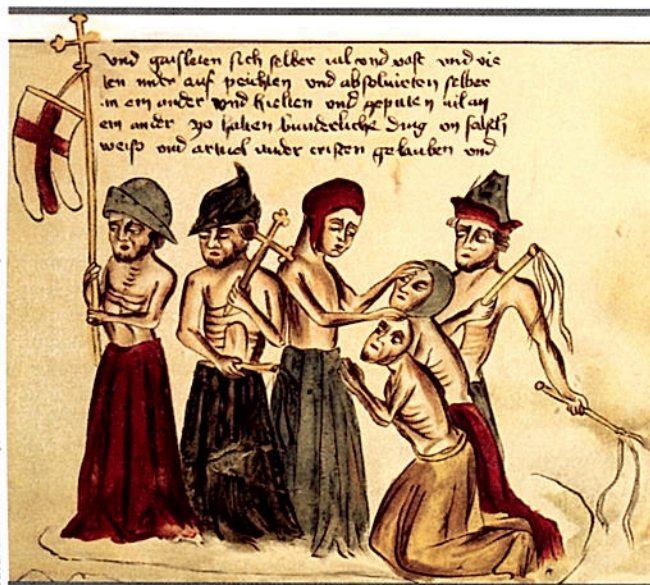 und gaisleten sich selber ial vond vast und vie
len nider auf peichten und absoluieten selber
in ein ander vnd hielten und geputen
ein ander yo halten wunderliche ding
weiß vnd artickl wider cristen gelauben vnd